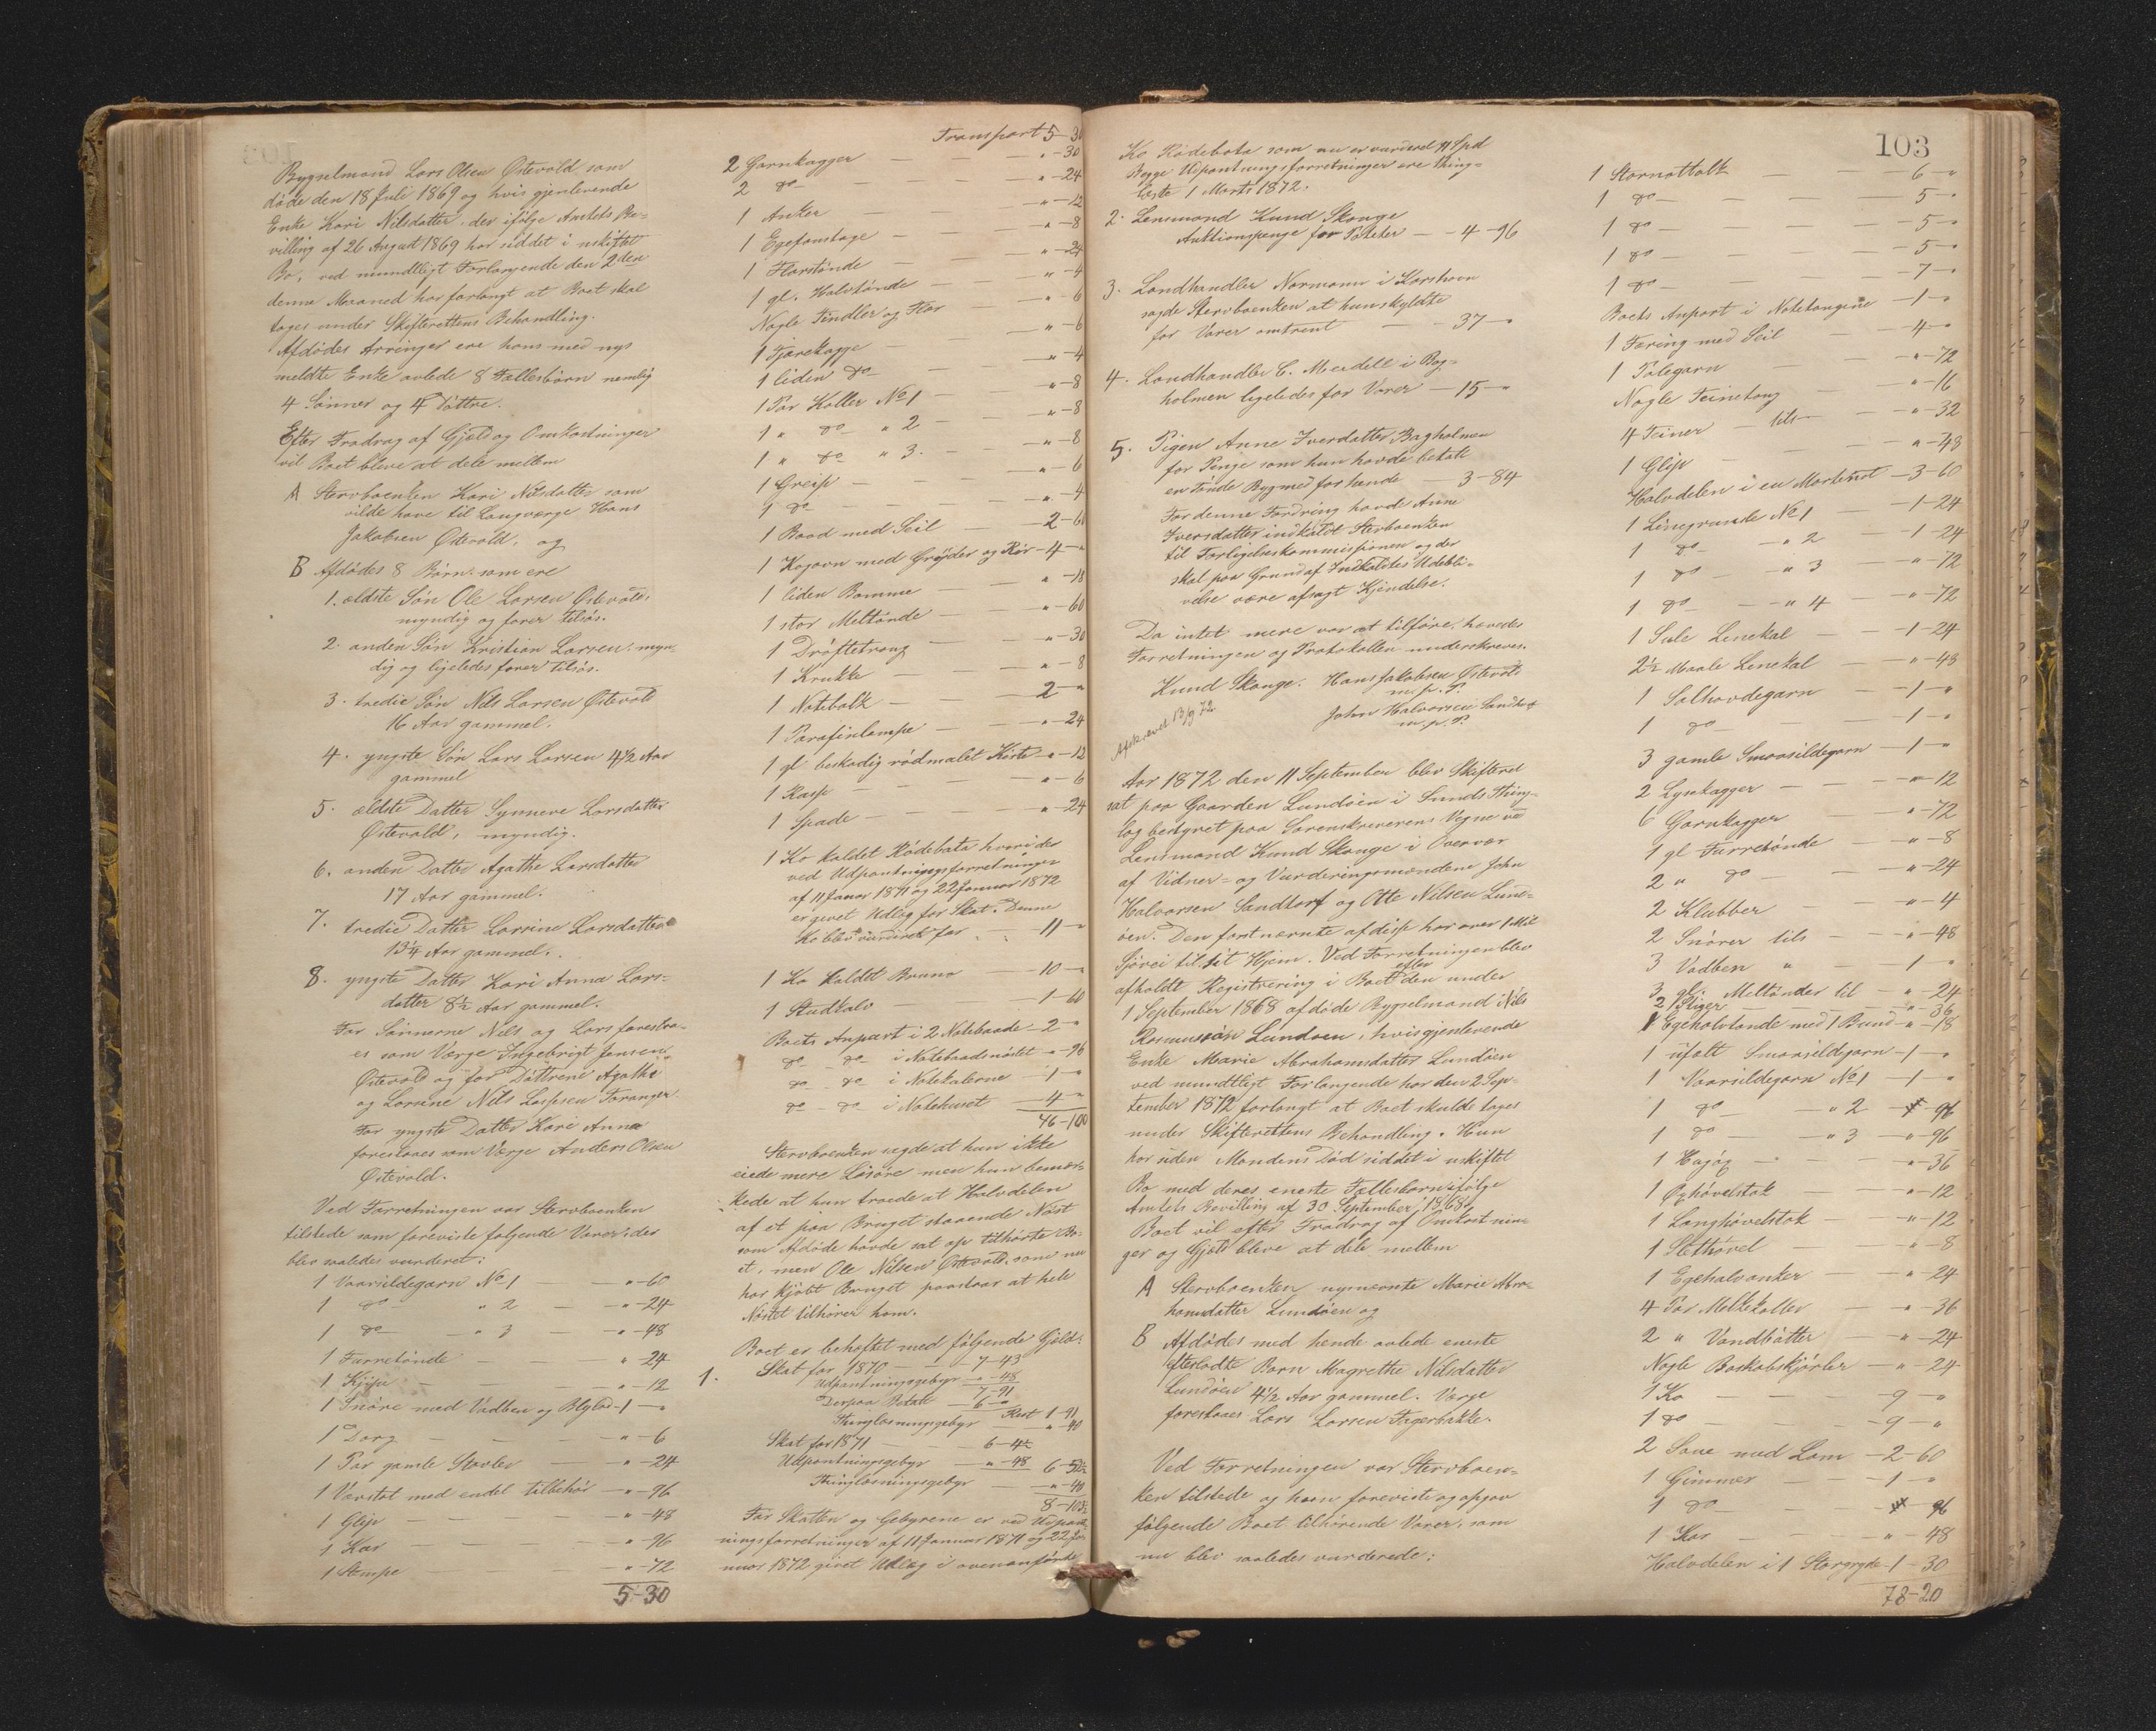 Bygselmand Lars Olsen Østevold som
døde den 18 Juli 1869 og hvis gjenlevende
Enke Kari Nilsdatter der ifølge Amtets Be-
villing af 26 August 1869 har siddet i uskiftet
Bo, ved mundtligt Forlangende den 2den
denne Maaned har forlangt at Boet skal
tages under Skifterettens Behandling.
Afdødes Arvinger ere hans med nys
meldte Enke avlede 8 Fællesbørn nemlig
4 Sønner og 4 Døttre.
Efter Fradrag af Gjæld og Omkostninger
vil Boet blive at dele mellem
A Stervboenken Kari Nilsdatter som
vilde have til Laugværge Hans
Jakobsen Østevold, og
B Afdødes 8 Børn som ere
1. ældste Søn Ole Larsen Østevold,
myndig og farer tilsøs.
2. anden Søn Kristian Larsen, myn-
dig og ligeledes farer tilsøs.
3. tredie Søn Nils Larsen Østevold
16 Aar gammel.
4. yngste Søn Lars Larsen 4½ Aar
gammel
5. ældste Datter Synneve Larsdatter
Østevold, myndig.
6. anden Datter Agathe Larsdatter
17 Aar gammel.
7. tredie Datter Larsine Larsdatter
13¼ Aar gammel.
8. yngste Datter Kari Anna Lars-
datter 8½ Aar gammel.
For Sønnerne Nils og Lars foreslaa-
es som Værge Ingebrigt Jensen
Østevold og for Døttrene Agathe
og Larsine Nils Larsen
For yngste Datter Kari Anna
foreslaaes som Værge Anders Olsen
Østevold.
Ved Forretningen var Stervboenken
tilstede som foreviste følgende Varer, der
blev saaledes vurderet:
1 Vaarsildegarn No 1 — „-60
1 do „ 2 — „-24
1 do — „ 3 — „-48
1 Farretønde — „-24
1 Kjipa — „-12
1 Snøre med Vadben og Blylod-1-„
1 Dorg — „-6
1 Par gamle Støvler — „-24
1 Vævstol med endel tilbehør — „-96
1 Glip — „-48
1 Kar — „-96
1 Stempe — „-72
5-30
Transport 5-30
2 Garnkagger — „-30
2 do — „-24
1 Anker — „-12
1 Egefoustage — „-8
1 Flastønde — „-24
1 gl. Halvtønde — „-4
Nogle Tindler og Flar — „-6
1 Tjærekagge — „-6
1 liden do — „-4
1 Par Koller No 1 — „-8
1 „ do „ 2 — „-8
1 „ do „ 3. — „-8
1 Greip — „-6
1 do — „-4
1 Baad med Seil — 2-60
1 Kogovn med Gryder og Rør-4-„
1 liden Bomme — „-18
1 stor Meltønde — „-60
1 Drøftetroug — „-30
1 Krukke — „-8
1 Notebalk — 2-„
1 Parafinlampe — „-24
1 gl beskadig rødmalet Kiste-„-12
1 Kasse — „-6
1 Spade — „-24
1 Ko kaldet Rødebota hvori der
ved Udpantningsforretninger
af 11 Januar 1871 og 22 Januar 1872
er givet Udlæg for Skat. Denne
Ko blev vurderet for — 11-„
1 Ko kaldet Bruna — 10-„
1 Studkalv — 1-60
Boets Anpart i 2 Notebaade-2-„
do do i Notebaadsnøstet-„-96
do do i Notekalerne — 1-„
do do i Notehuset — 4-„
46-100
Stervboenken sagde at hun ikke
eiede mere Løsøre men hun bemær-
kede at hun troede at Halvdelen
af et paa Bruget staaende Nøst
som Afdøde havde sat op tilhørte Bo-
et, men Ole Nilsen Østevold, som nu
har kjøbt Bruget paastaar at hele
Nøstet tilhører ham.
Boet er behæftet med følgende Gjæld:
1. Skat for 1870 — 7-43
Udpantningsgebyr „-48
7-91
Derpaa Betalt — 6-„
Rest 1-91
Thinglæsningsgebyr „-40
Skat for 1871 — 6-4½
Udpantningsgebyr — „-48 6-52½
Thinglæsningsgebyr — „-40
8-103½
For Skatten og Gebyrene er ved Udpant-
ningsforretninger af 11 Januar 1871 og 22 Ja-
nuar 1872 givet Udlæg i ovenanførte
103
Ko Rødebota som nu er vurderet 11 Spd
Begge Udpantningsforretninger ere thing-
læste 1 Marts 1872.
2. Lensmand Knud Skauge
Auktionspenge for Poteter — 4-96
3. Landhandler Normann i Korshavn
sagde Stervboenken at hun skyldte
for Varer omtrent — 37-„
4. Landhandler C. Meidell i Bag-
holmen ligeledes for Varer — 15-„
5. Pigen Anne Iversdatter Bagholmen
for Penge som hun havde betalt
en Tønde Byg med for hende — 3-84
For denne Fordring havde Anne
Iversdatter indkaldt Stervboenken
til Forligelseskommissionen og der
skal paa Grund af Indkaldtes Udebli-
velse være afsagt Kjendelse.
Da intet mere var at tilføre, hævedes
Forretningen og Protokollen underskreves.
Knud Skauge. Hans Jakobsen Østevold
m. p. P.
John Halvorsen Sandtorf
m. p. P.
Afskrevet 13/9 72
Aar 1872 den 11 September blev Skifteret
sat paa Gaarden Lundøen i Sunds Thing-
lag bestyret paa Sorenskriverens Vegne ved
Lensmand Knud Skauge i Overvær
af Vidner- og Vurderingsmændene John
Halvorsen Sandtorf og Otte Nilsen Lund-
øen. Den førstnævnte af disse har over 1 Mil
Sjøvei til sit Hjem. Ved Forretningen blev
afholdt Registrering i Boet efter den under
1 September 1868 afdøde Bygselmand Nils
Rasmussøn Lundøen, hvis gjenlevende
Enke Marie Abrahamsdatter Lundøen
ved mundtligt Forlangende har den 2 Sep-
tember 1872 forlangt at Boet skulde tages
under Skifterettens Behandling. Hun
har siden Mandens Død siddet i uskiftet
Bo med deres eneste Fællesbarn ifølge
Amtets Bevilling af 30 September 1868.
Boet vil efter Fradrag af Omkostnin-
ger og Gjæld blive at dele mellem
A Stervboenken nysnævnte Marie Abra-
hamsdatter Lundøen og
B Afdødes med hende avlede eneste
efterladte Barn Magrethe Nilsdatter
Lundøen 4½ Aar gammel. Værge
foreslaaes Lars Larsen Fagerbakke.
Ved Forretningen var Stervboen-
ken tilstede og hun foreviste og opgav
følgende Boet tilhørende Varer, som
nu blev saaledes vurderede:
1 Stornotbalk — 6-„
1 do — 5-„
1 do — 5-„
1 do — 5-„
1 do — 7-„
Boets Anpart i Notetougene — 1-„
1 Færing med Seil — 4-„
1 Palegarn — „-72
Nogle Teinetoug — „-16
4 Teiner tils — „-32
1 Glip — „-48
Halvdelen i en -3-60
1 Linegrunde No 1 — 1-24
1 do — „ 2 — 1-24
1 do — „ 3 — „-72
1 do — „ 4 — „-72
1 Sule Linekal — 1-24
2½ Maale Linekal — „-48
1 Salhovdegarn — 1-„
1 do — 1-„
3 gamle Smaasildegarn — 1-„
2 Lysekagger — „-12
6 Garnkagger — „-72
1 gl Farretønde — „-8
2 „ do — „-24
2 Klubber — „-4
2 Snører tils — „-48
3 Vadben „ — 1-„
3 gl. Meltønder til — „-24
2 Stiger — „-36
1 Egehalvtønde med 1 Bund-„-18
1 ufælt Smaasildegarn — 1-„
1 Vaarsildegarn No 1 — 1-„
1 do — „ 2 „-96
1 do — „ 3 — „-96
1 — „-36
1 Øghøvelstok — „-12
1 Langhøvelstok — „-12
1 Slethøvel — „-8
1 Egehalvanker — „-24
4 Par Melkekoller — „-36
2 „ Vandbøtter — „-24
Nogle Boskabskjørler — „-24
1 Ko — 9-„
1 do — 9-„
2 Saue med Lam — 2-60
1 Gimmer — 1-„
1 do — „-96
1 Kar — „-48
Halvdelen i 1 Storgryde-1-30
78-20